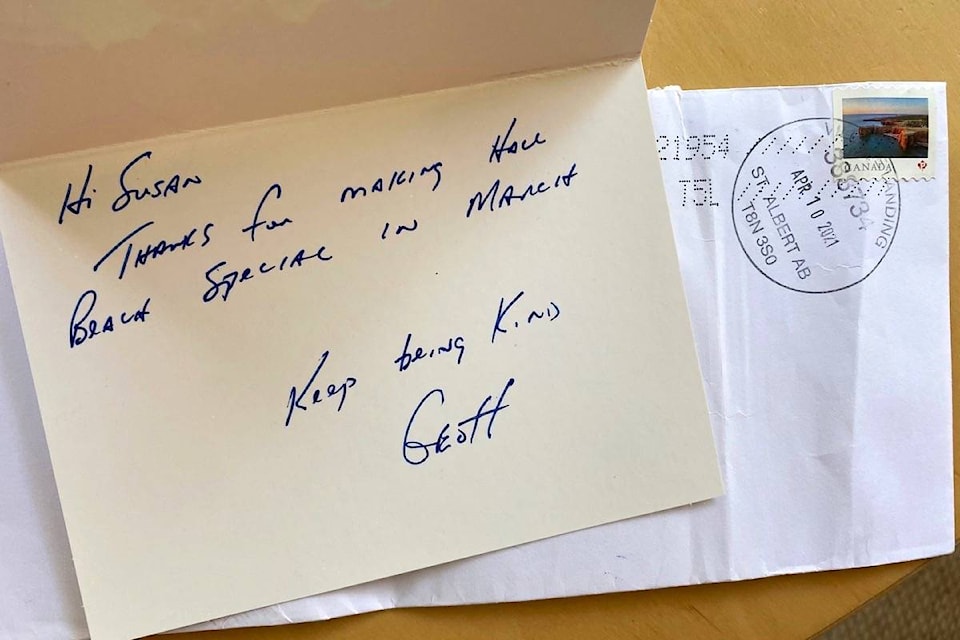 Hi Susan
THANKS for making Hall
Beach Special in March
Keep being Kind
Geoff
21954
T5L
CANADA
P
ANDING
388734
APR 10 2021
ST. ALBERT AB
T8N 3S0